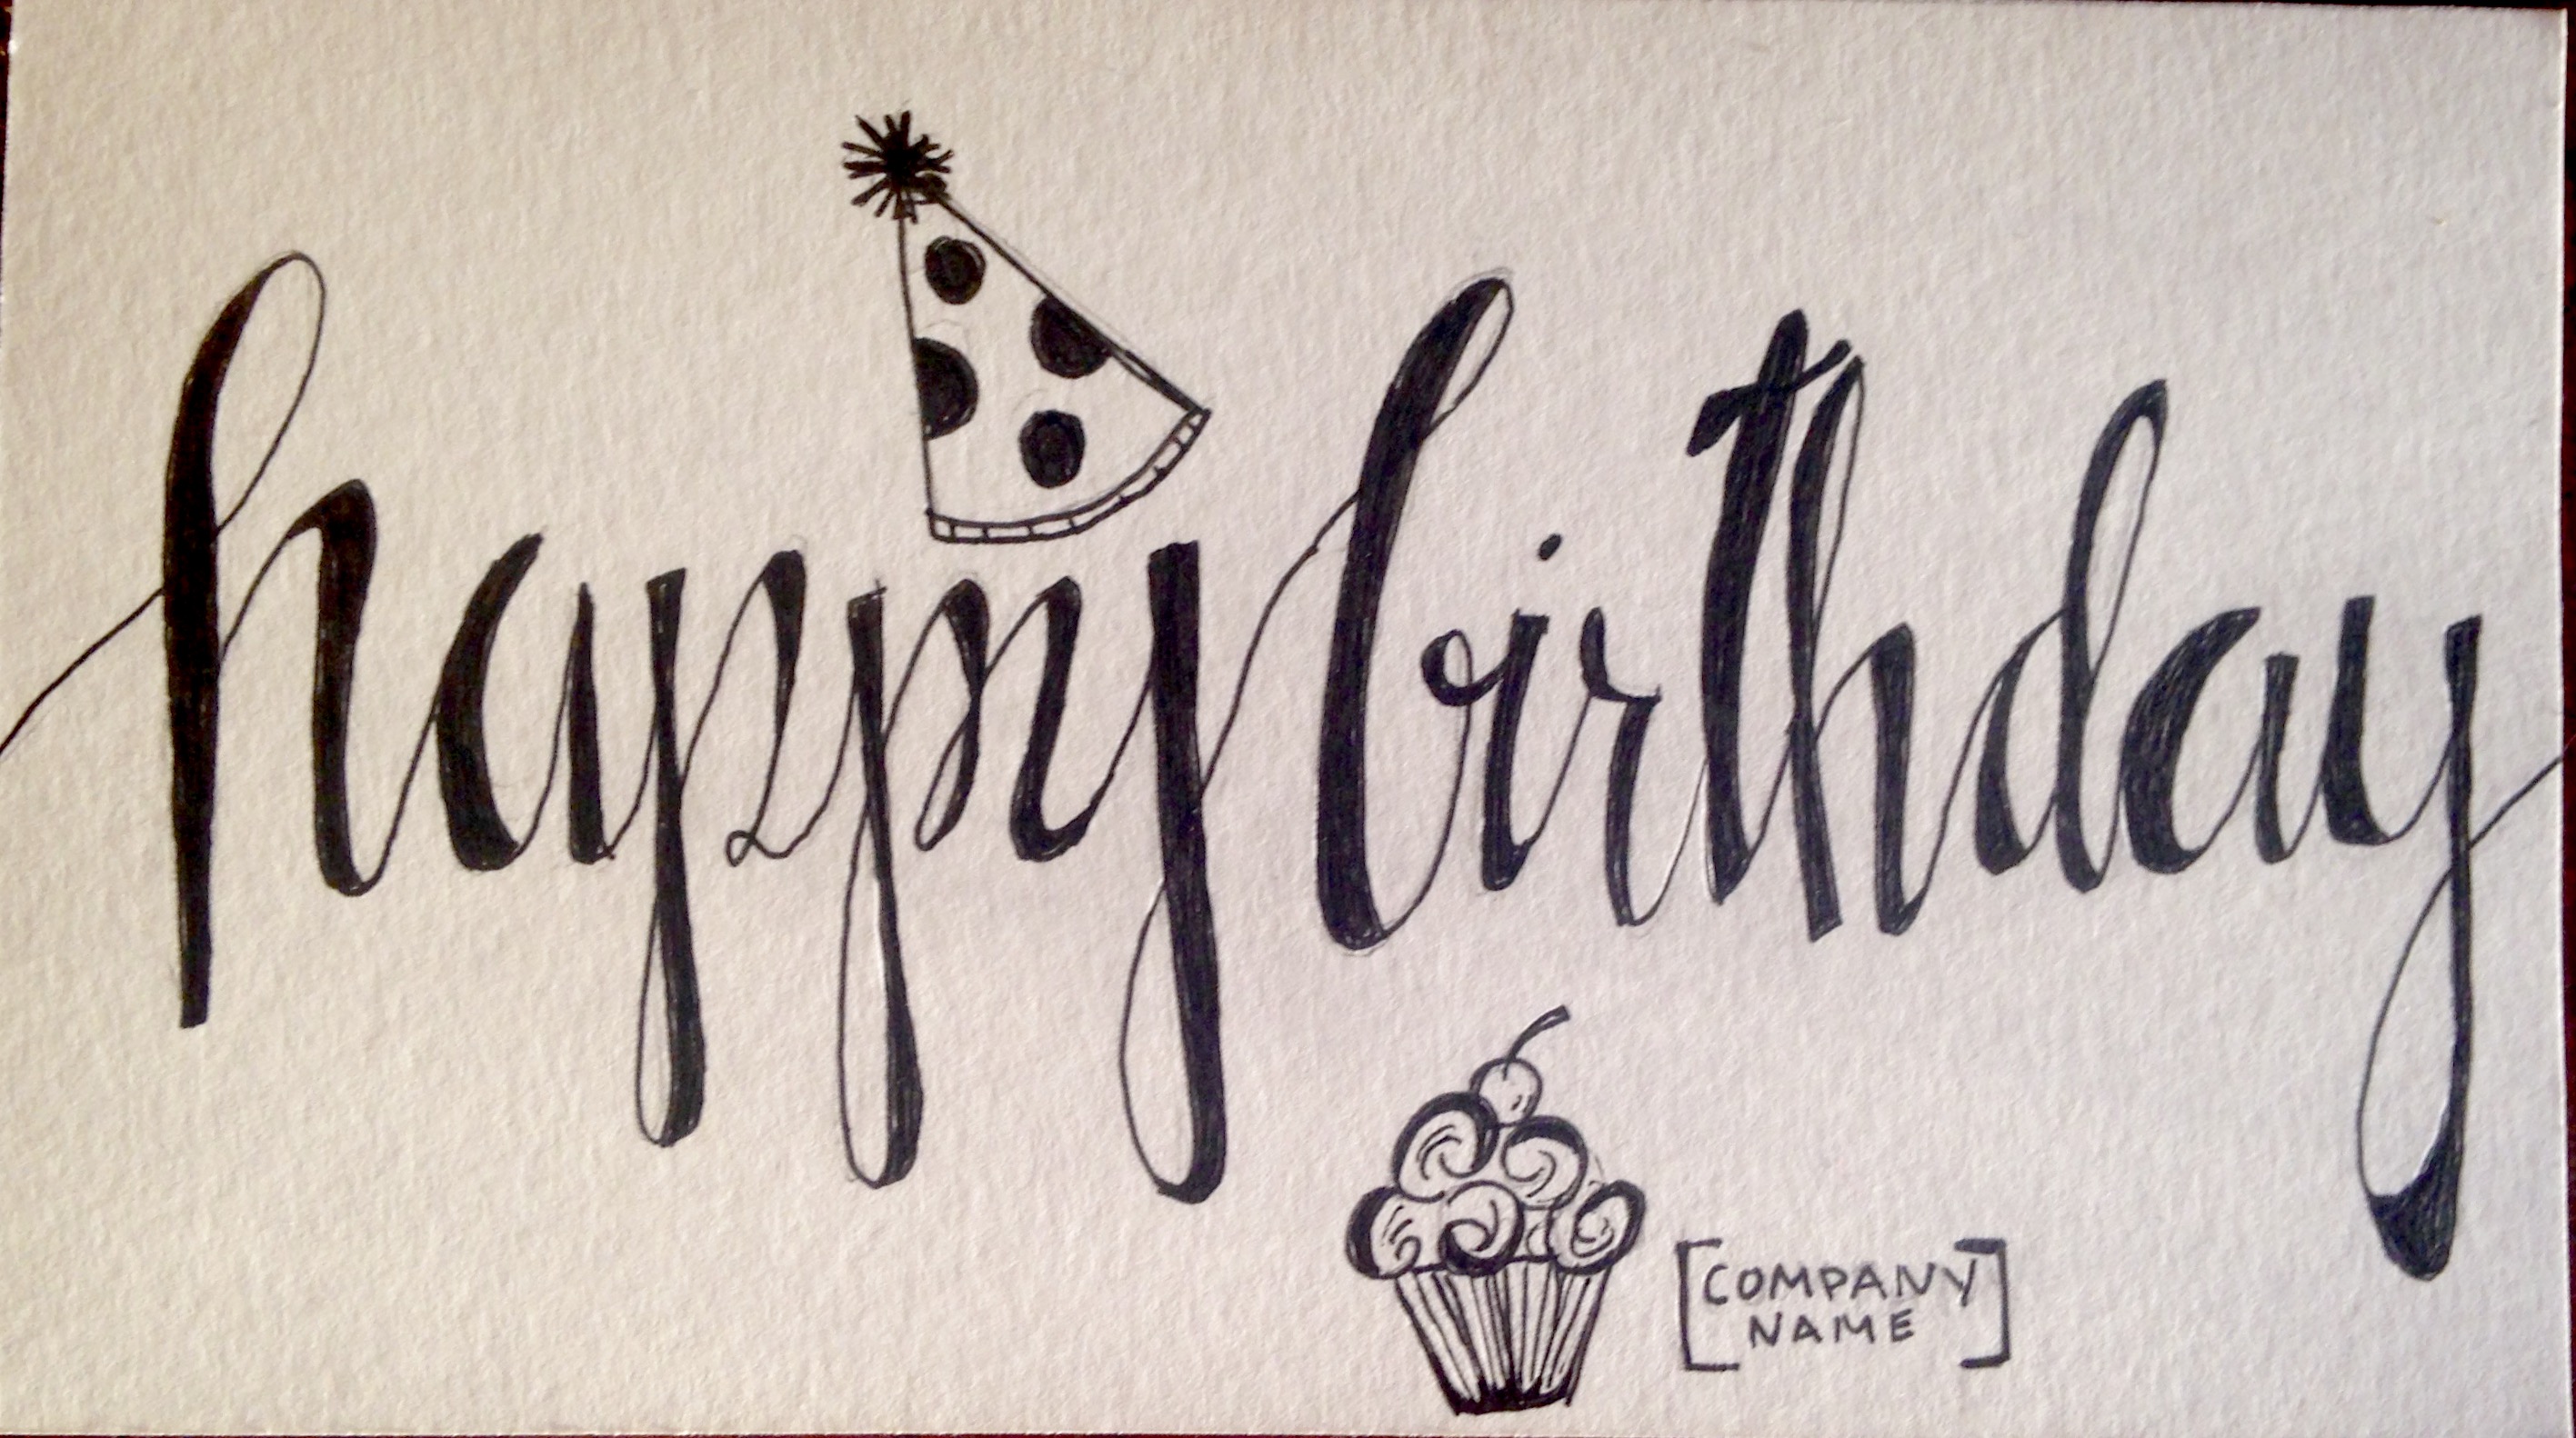 happy birthday
[COMPANY
NAME]